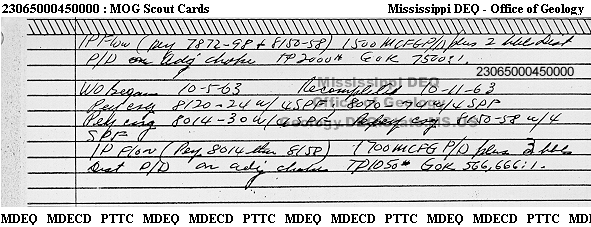 23065000450000 : MOG Scout Cards Mississippi DEQ - Office of Geology
IP Flow (Perf 7872-98 & 8150-58) 1500 MCFG P/D plus 2 bbl Dist
P/D on adj choke TP 2000# GOR 750:1.
23065000450000
Mississippi DEQ
WO began 10-5-63 Recompleted 10-11-63
Perf csg 8120-24 w/ 4 SPF, 8070- w/4 SPF
Office of Geology
Perf csg 8014-30 w/ 4 SPF Reperf csg 8150-58 w/4
SPF
IP Flow (Perf 8014 thru 8158) 1700 MCFG P/D plus 3 bbls
Dist P/D on adj choke TP 1050# GOR 566,666:1.
MDEQ MDECD PTTC MDEQ MDECD PTTC MDEQ MDECD PTTC MDEQ MDECD PTTC